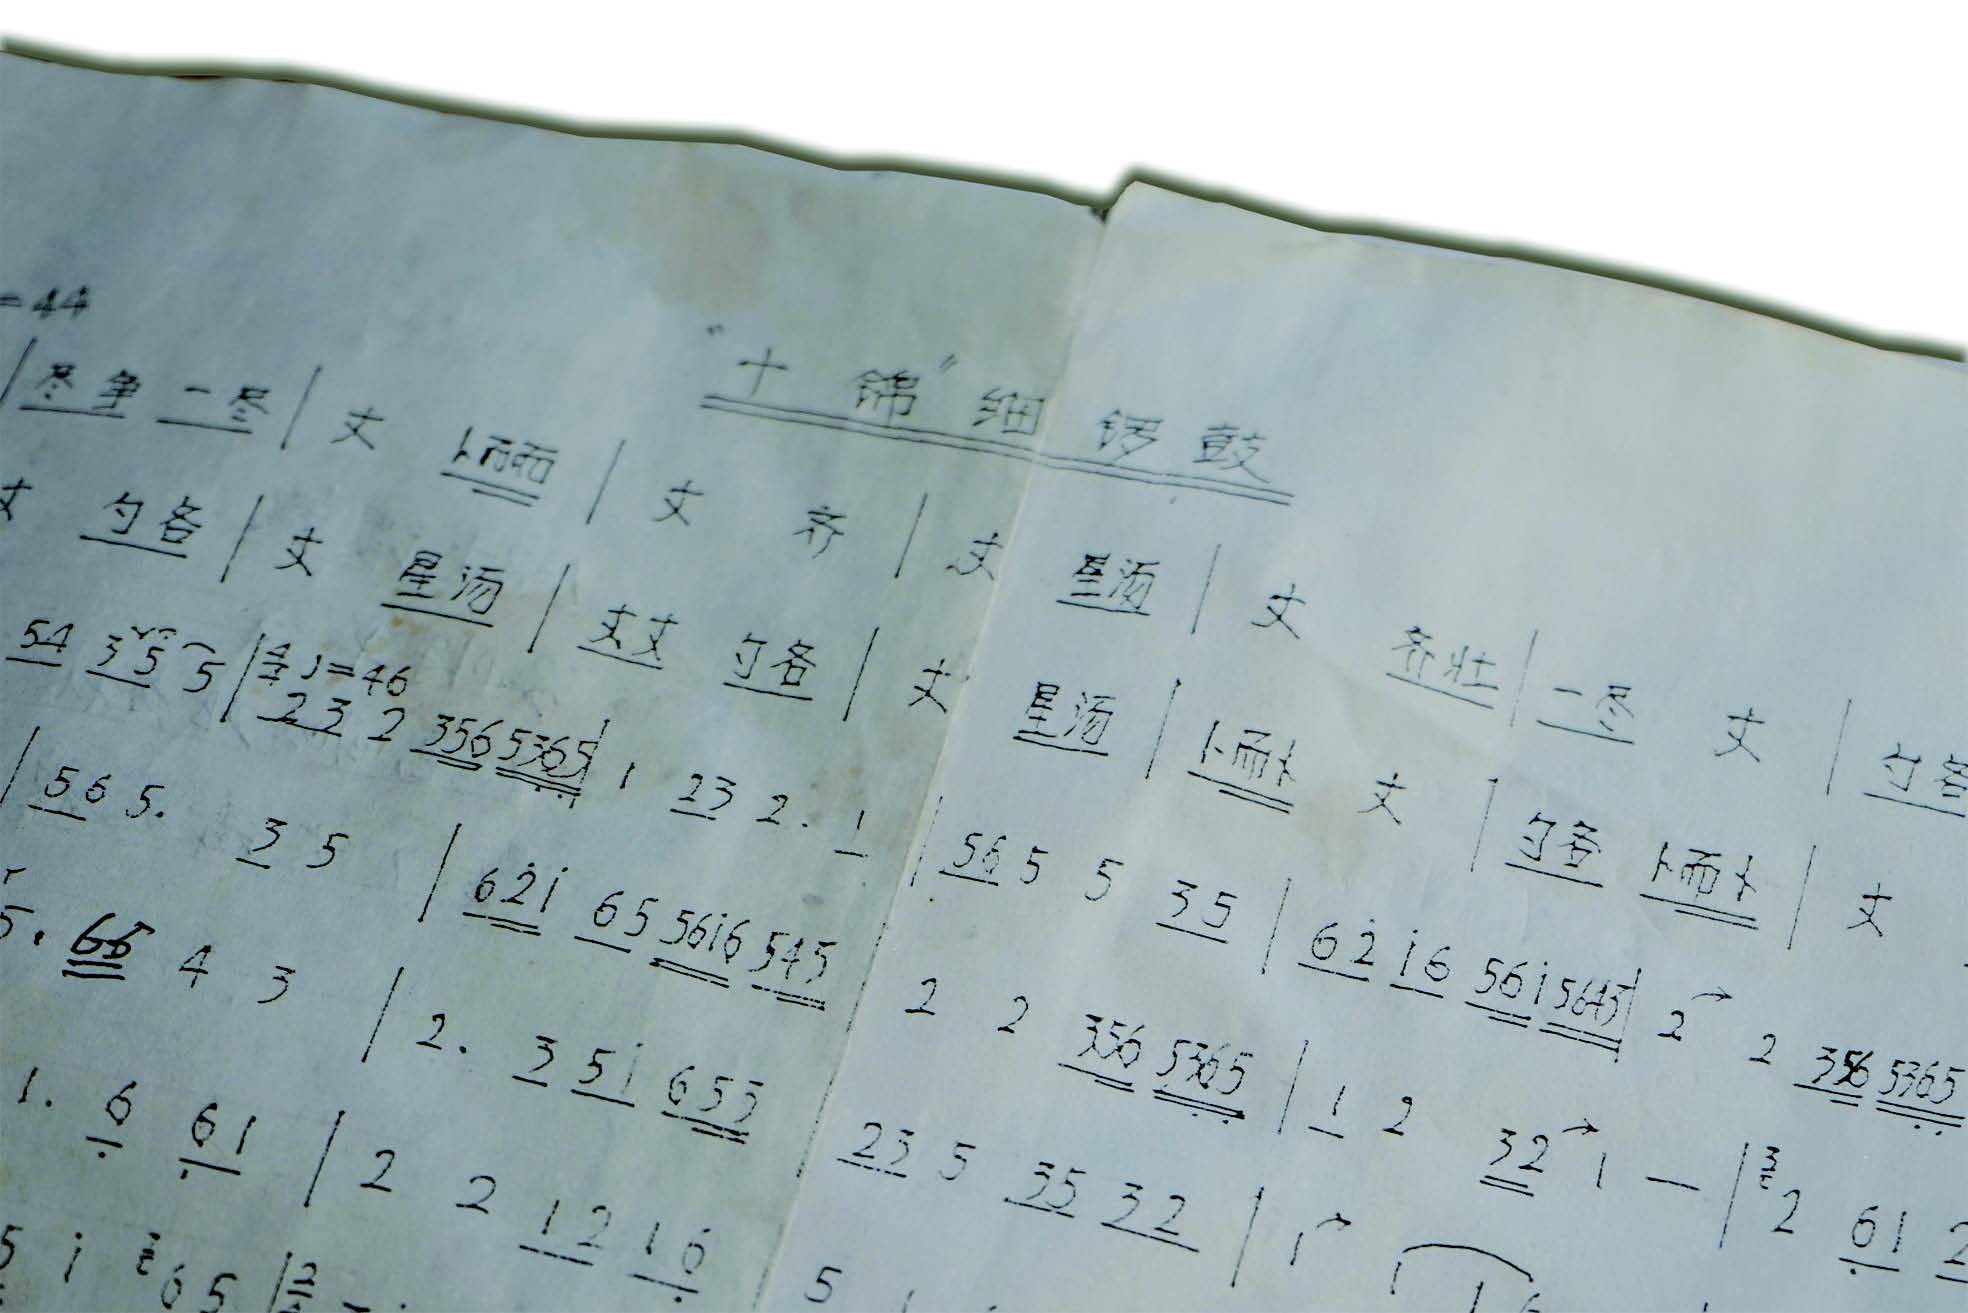 "十锦"细锣鼓
=44
| 尽争 一尽 | 丈 卜而而 | 丈 齐 | 丈 星汤 | 丈 齐壮 | 一尽 丈 | 勺各
丈 勺各 | 丈 星汤 | 丈丈 勺各 | 丈 星汤 | 卜而卜 丈 | 勺各 卜而卜 | 丈
54 35 5 | 4/4 ♩=46 23 2 356 5365 | 1 23 2. 1 | 56 5 5 35 | 62 i6 56i 5645 | 2 2 356 5365
| 56 5. 35 | 62i 65 56i6 545 2 2 356 5365 | 1 2 32 1 — | 2 61 2
5. 66 4 3 | 2. 3 5i 655 23 5 35 32 | 1
1. 6 61 | 2 2 12 16 5
5 i 65 |